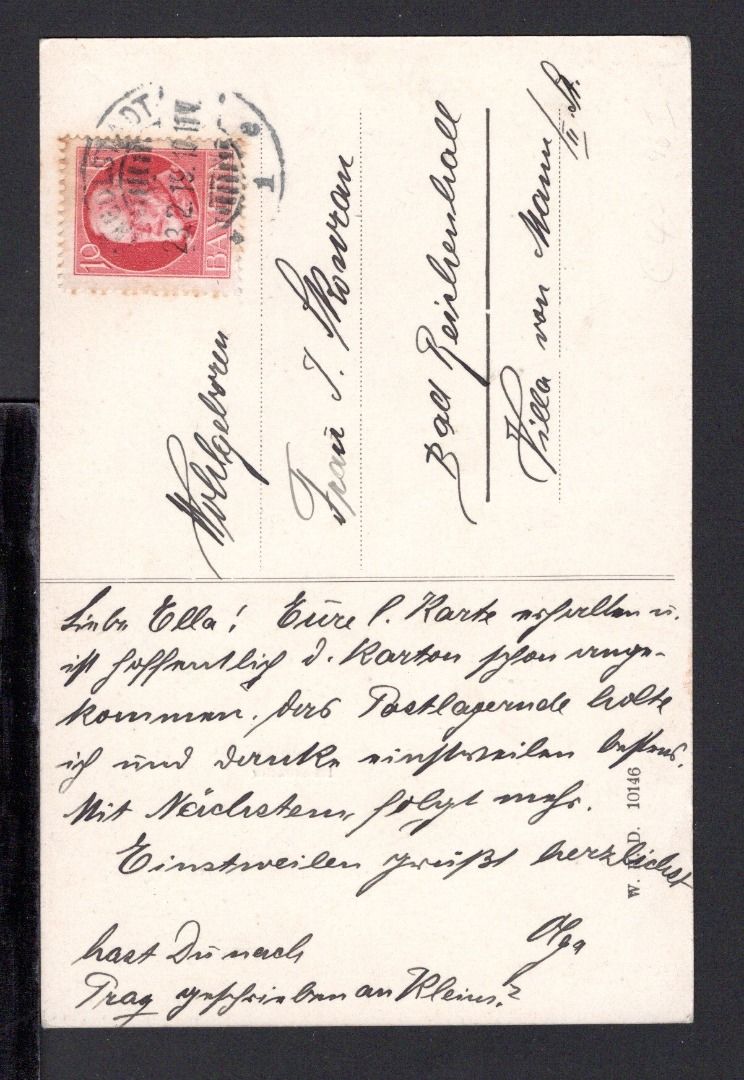 INGOLSTADT
23.2.18. 10-11 V.
e
1
10
BA
Wohlgeboren
Frau J. Skowran
Bad Reichenhall
Villa von Mann
III St.
Liebe Ella! Eure l. Karte erhalten u.
ist hoffentlich d. Karton schon ange-
kommen. das Postlagernde holte
ich und danke einstweilen bestens.
Mit Nächstem folgt mehr.
Einstweilen grüßt herzlichst
Olga
hast Du nach
Prag geschrieben an Kleins?
W. D. 10146